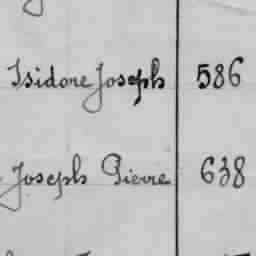 Isidore Joseph 586
Joseph Pierre 638